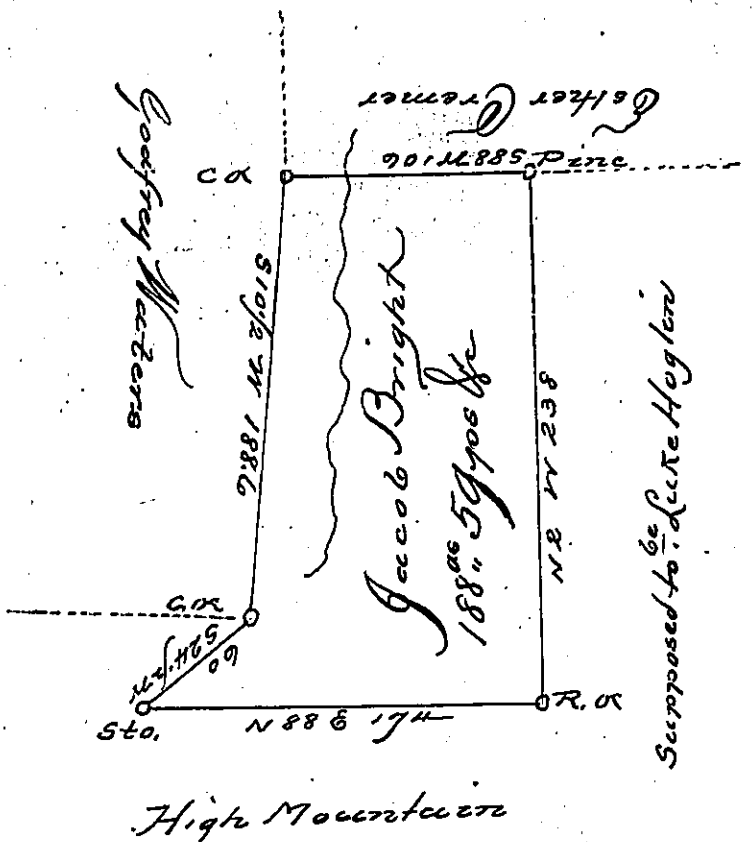 Esther Cremer
S88W 106 Pine
C O
Godfrey Waters
S10½ W 188.6
Jacob Bright
188ac " 59 ps &c
N2 W 238
Supposed to be Luke Hoglin
60
S24½ W
Sto.
N88 E 174
R. O
High Mountain